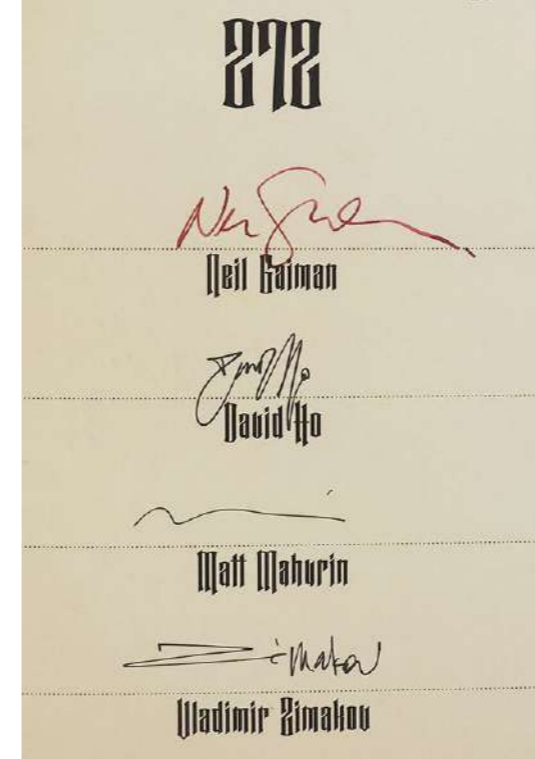 272
Neil Gaiman
David Ho
Matt Mahurin
Zimakov
Vladimir Zimakov